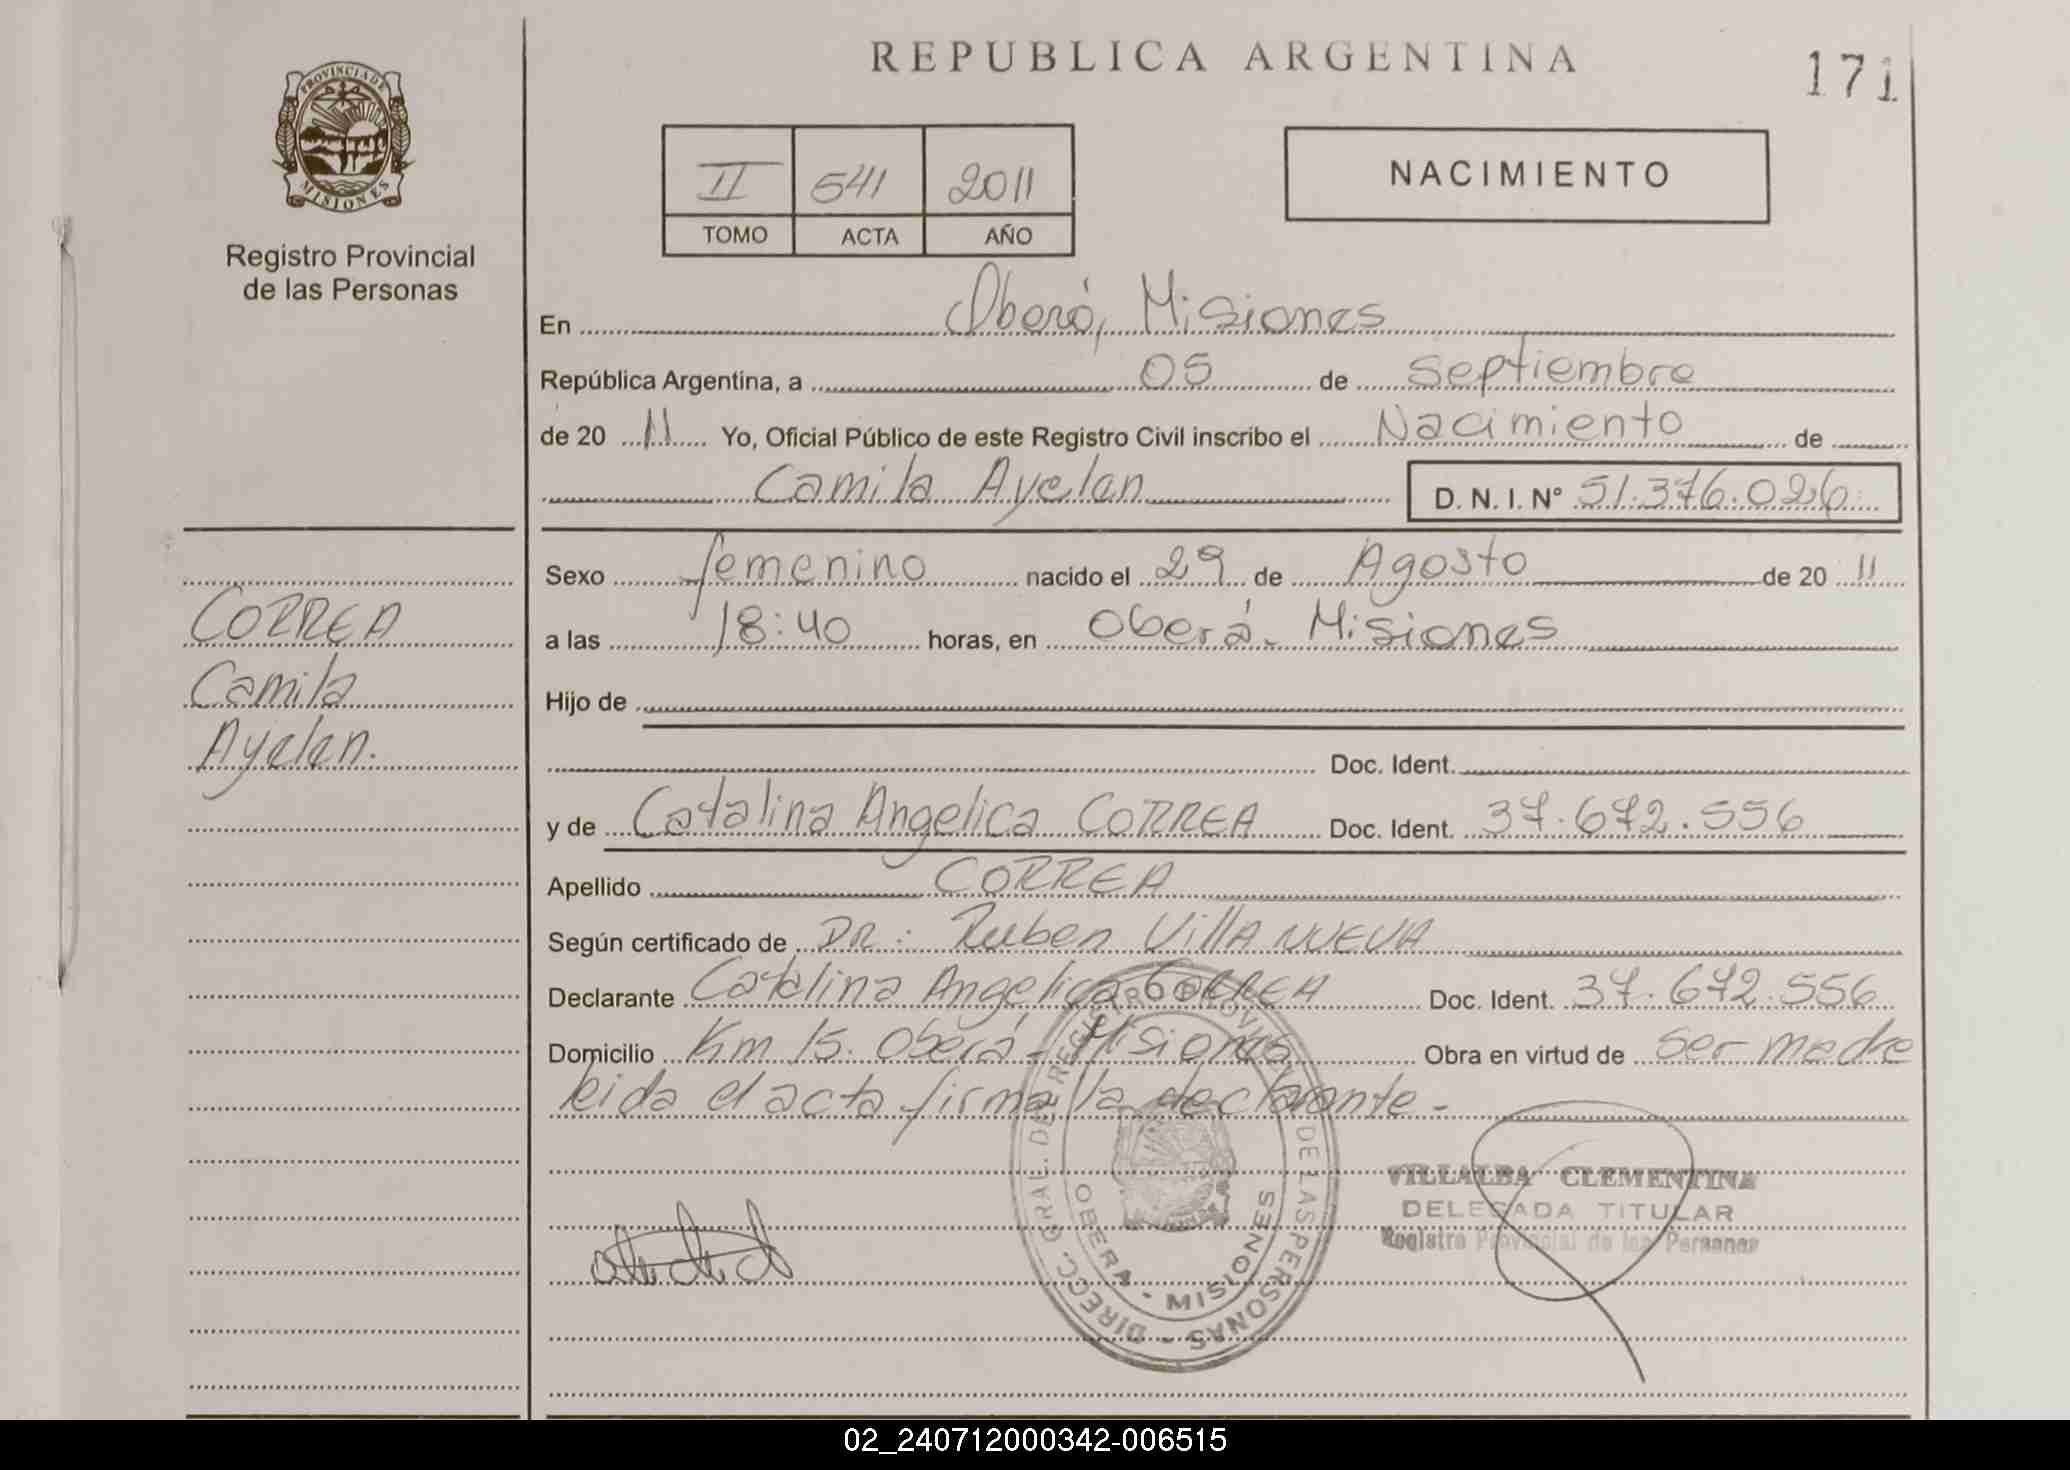 REPUBLICA ARGENTINA
171
PROVINCIA DE MISIONES
Registro Provincial
de las Personas
II 541 2011
TOMO ACTA AÑO
NACIMIENTO
En Oberá, Misiones
República Argentina, a 05 de septiembre
de 20 11 Yo, Oficial Público de este Registro Civil inscribo el Nacimiento de
Camila Ayelen D. N. I. Nº 51.376.026
Sexo femenino nacido el 29 de Agosto de 20 11
a las 18:40 horas, en Oberá - Misiones
Hijo de
Doc. Ident.
y de Catalina Angelica CORREA Doc. Ident. 37.672.556
Apellido CORREA
Según certificado de DR: Ruben VillANUEVA
Declarante Catalina Angelica CORREA Doc. Ident. 37.672.556
Domicilio Km 15. Oberá - Misiones Obra en virtud de ser madre
leida el acta firma la declarante -
CORREA
Camila
Ayelen.
DIRECC. GRAL. DEL REGISTRO PROVINCIAL DE LAS PERSONAS -
OBERA - MISIONES
VILLALBA CLEMENTINA
DELEGADA TITULAR
Registro Provincial de las Personas
02_240712000342-006515